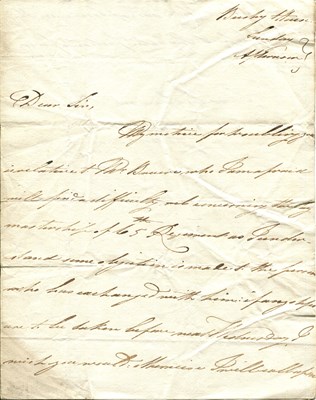 Bushy House
Sunday
Afternoon
Dear Sir,
My motive for troubling you
is relative to Mr who I am afraid
will find a difficulty in the Pay
mastership of 65th Regiment as I under
stand some objection is made to the person
who has exchanged with him: if any steps
are to be taken before next Wednesday I
wish you would otherwise I will